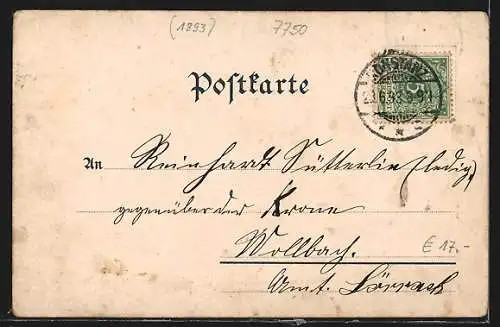 (1893) 7750
Postkarte
KONSTANZ
5
An Reinhardt Sütterlin (ledig)
gegenüber der Krone
Wollbach.
€ 17.-
Amt. Lörrach